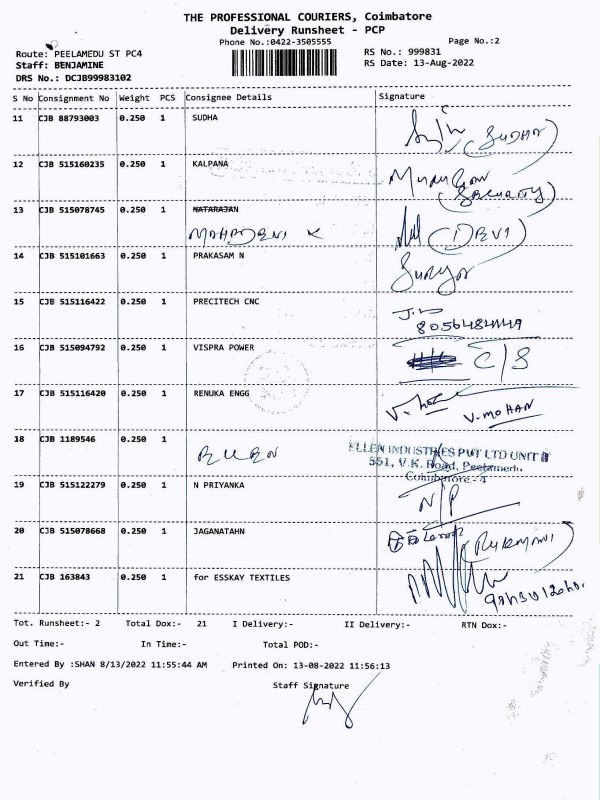 THE PROFESSIONAL COURIERS, Coimbatore
Delivery Runsheet - PCP
Phone No.:0422-3505555
Page No.:2
Route: PEELAMEDU ST PC4
RS No.: 999831
Staff: BENJAMINE
RS Date: 13-Aug-2022
DRS No.: DCJB99983102
S No Consignment No Weight PCS Consignee Details Signature
11 CJB 88793003 0.250 1 SUDHA
(SUDHA)
12 CJB 515160235 0.250 1 KALPANA
(Security)
13 CJB 515078745 0.250 1 NATARAJAN
MAHADEVI K
(DEVI)
14 CJB 515101663 0.250 1 PRAKASAM N
Surya
15 CJB 515116422 0.250 1 PRECITECH CNC
16 CJB 515094792 0.250 1 VISPRA POWER
C/S
17 CJB 515116420 0.250 1 RENUKA ENGG
V. MOHAN
18 CJB 1189546 0.250 1
ELLEN
ELLEN INDUSTRIES PVT LTD UNIT II
551, V.K. Road, Peelamedu,
Coimbatore.-4
19 CJB 515122279 0.250 1 N PRIYANKA
N/P
20 CJB 515078668 0.250 1 JAGANATAHN
(Rukmani)
21 CJB 163843 0.250 1 for ESSKAY TEXTILES
Tot. Runsheet:- 2 Total Dox:- 21 I Delivery:- II Delivery:- RTN Dox:-
Out Time:- In Time:- Total POD:-
Entered By :SHAN 8/13/2022 11:55:44 AM Printed On: 13-08-2022 11:56:13
Verified By Staff Signature